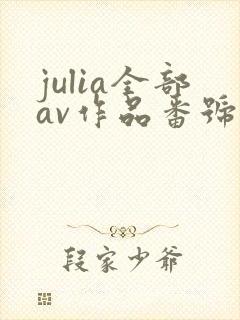 julia全部
av作品番號
段家少爺